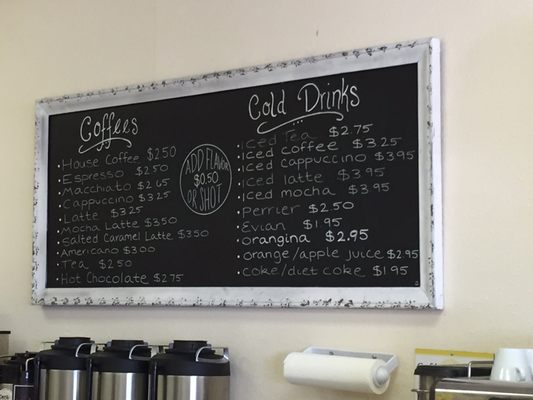 Coffees
· House Coffee $2.50
· Espresso $2.50
· Macchiato $2.65
· Cappuccino $3.25
· Latte $3.25
· Mocha Latte $3.50
· Salted Caramel Latte $3.50
· Americano $3.00
· Tea $2.50
· Hot Chocolate $2.75
ADD FLAVOR
$0.50
OR SHOT
Cold Drinks
· iced Tea $2.75
· iced coffee $3.25
· iced cappuccino $3.95
· iced latte $3.95
· iced mocha $3.95
· perrier $2.50
· Evian $1.95
· orangina $2.95
· orange/apple juice $2.95
· coke/diet coke $1.95